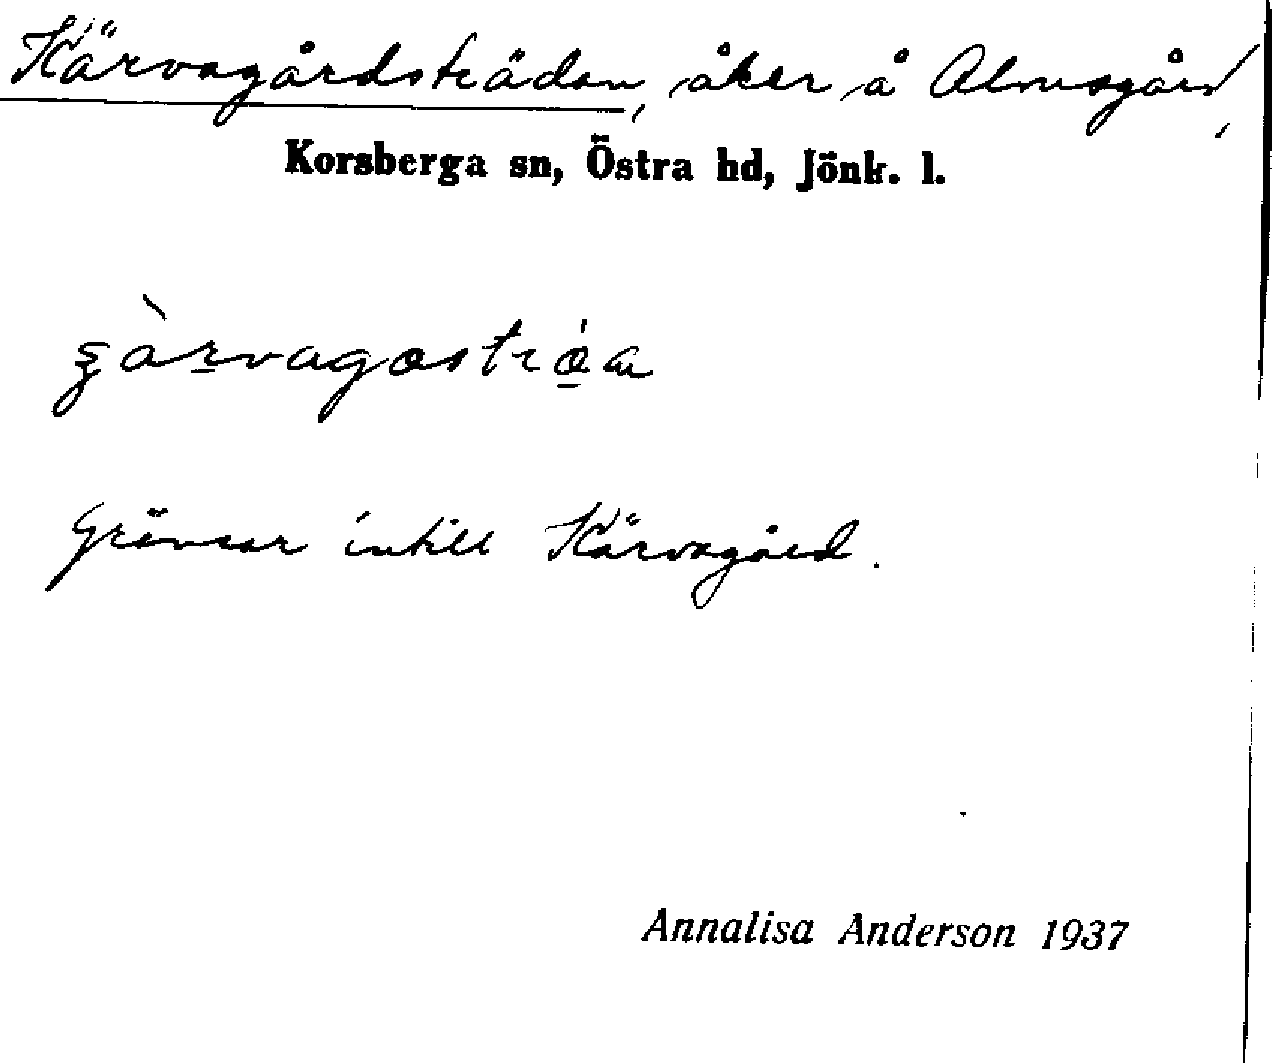 Kärvagårdsträdan, åker å Almsgård,
Korsberga sn, Östra hd, Jönk. l.
Gränsar intill Kärvagård.
Annalisa Anderson 1937